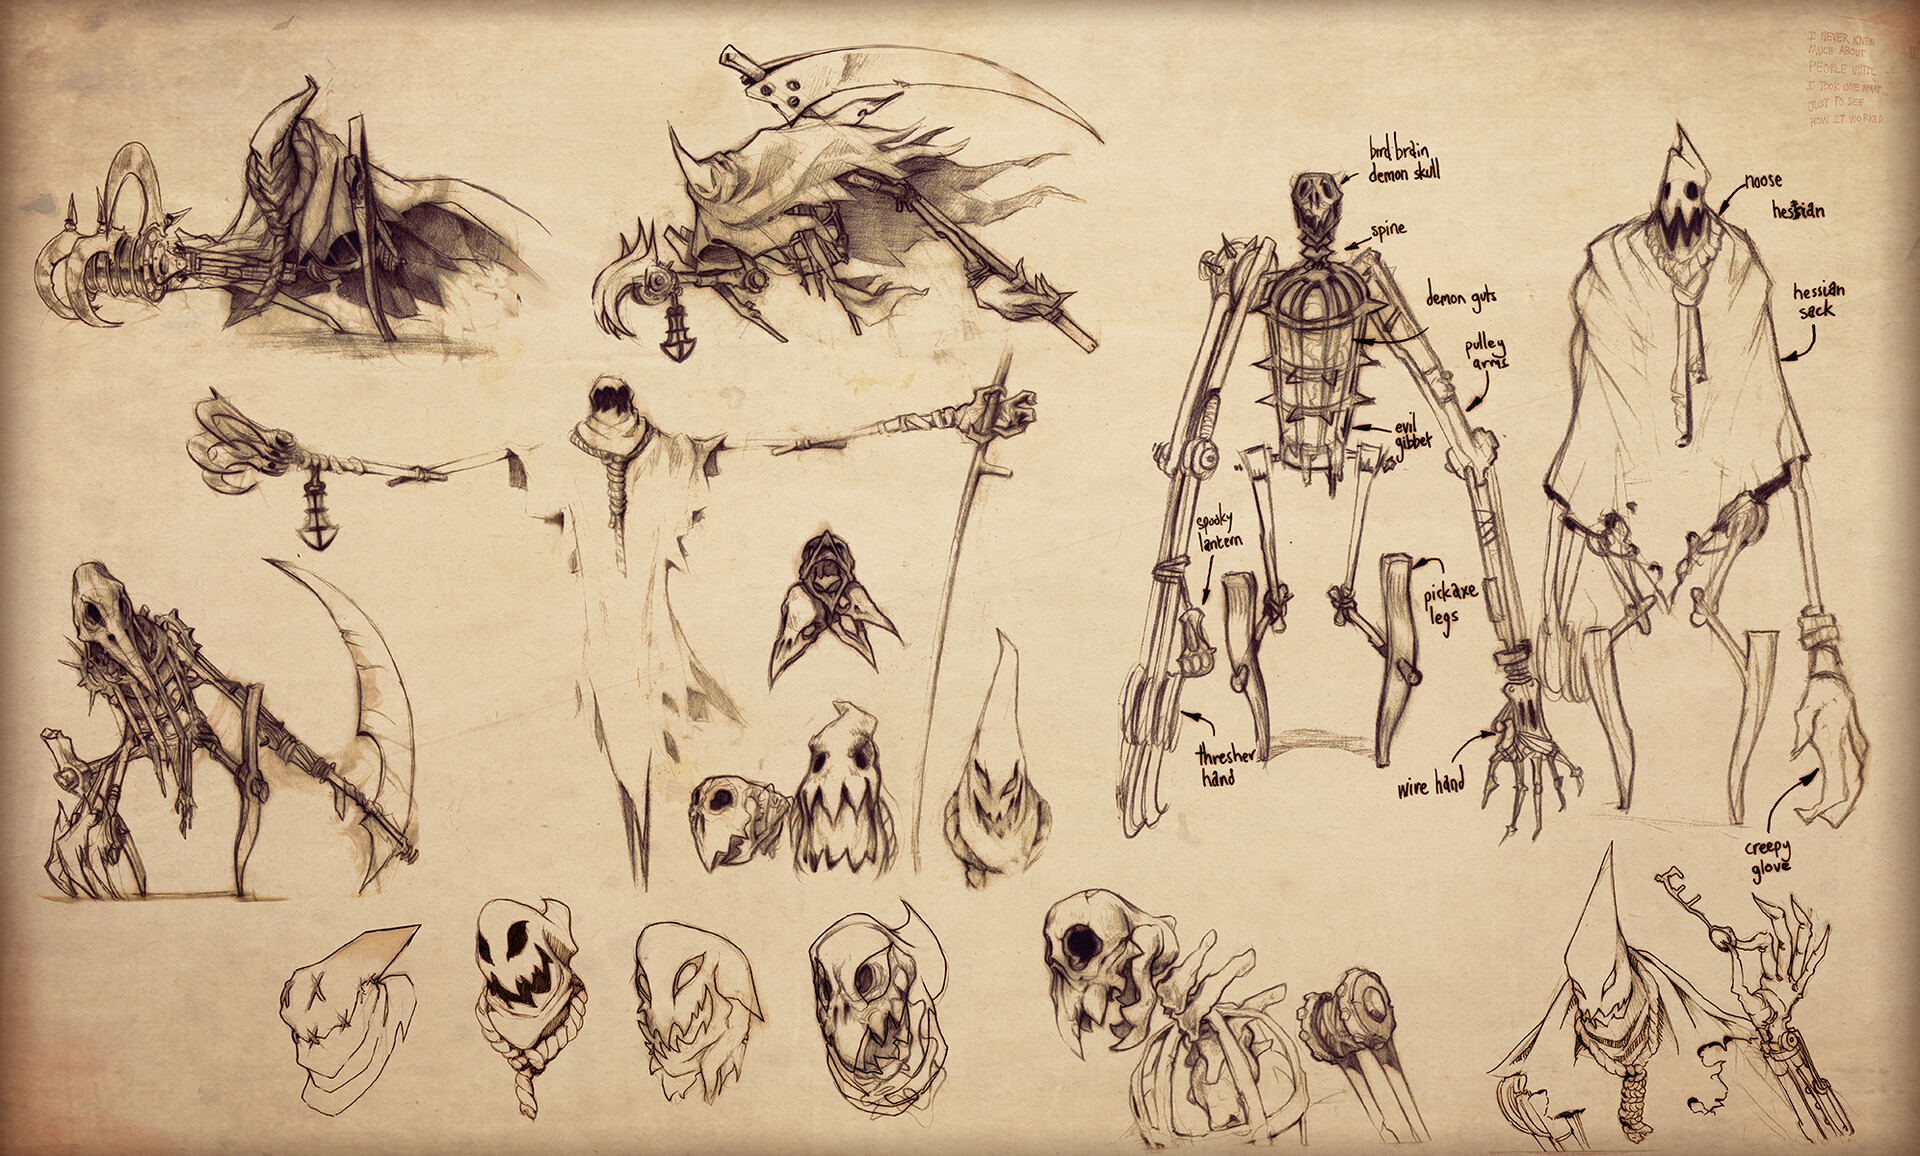 I NEVER KNEW
MUCH ABOUT
PEOPLE UNTIL
I TOOK ONE APART
JUST TO SEE
HOW IT WORKED
bird brain
demon skull
spine
demon guts
pulley
arms
evil
gibbet
spooky
lantern
pickaxe
legs
thresher
hand
wire hand
noose
hessian
hessian
sack
creepy
glove